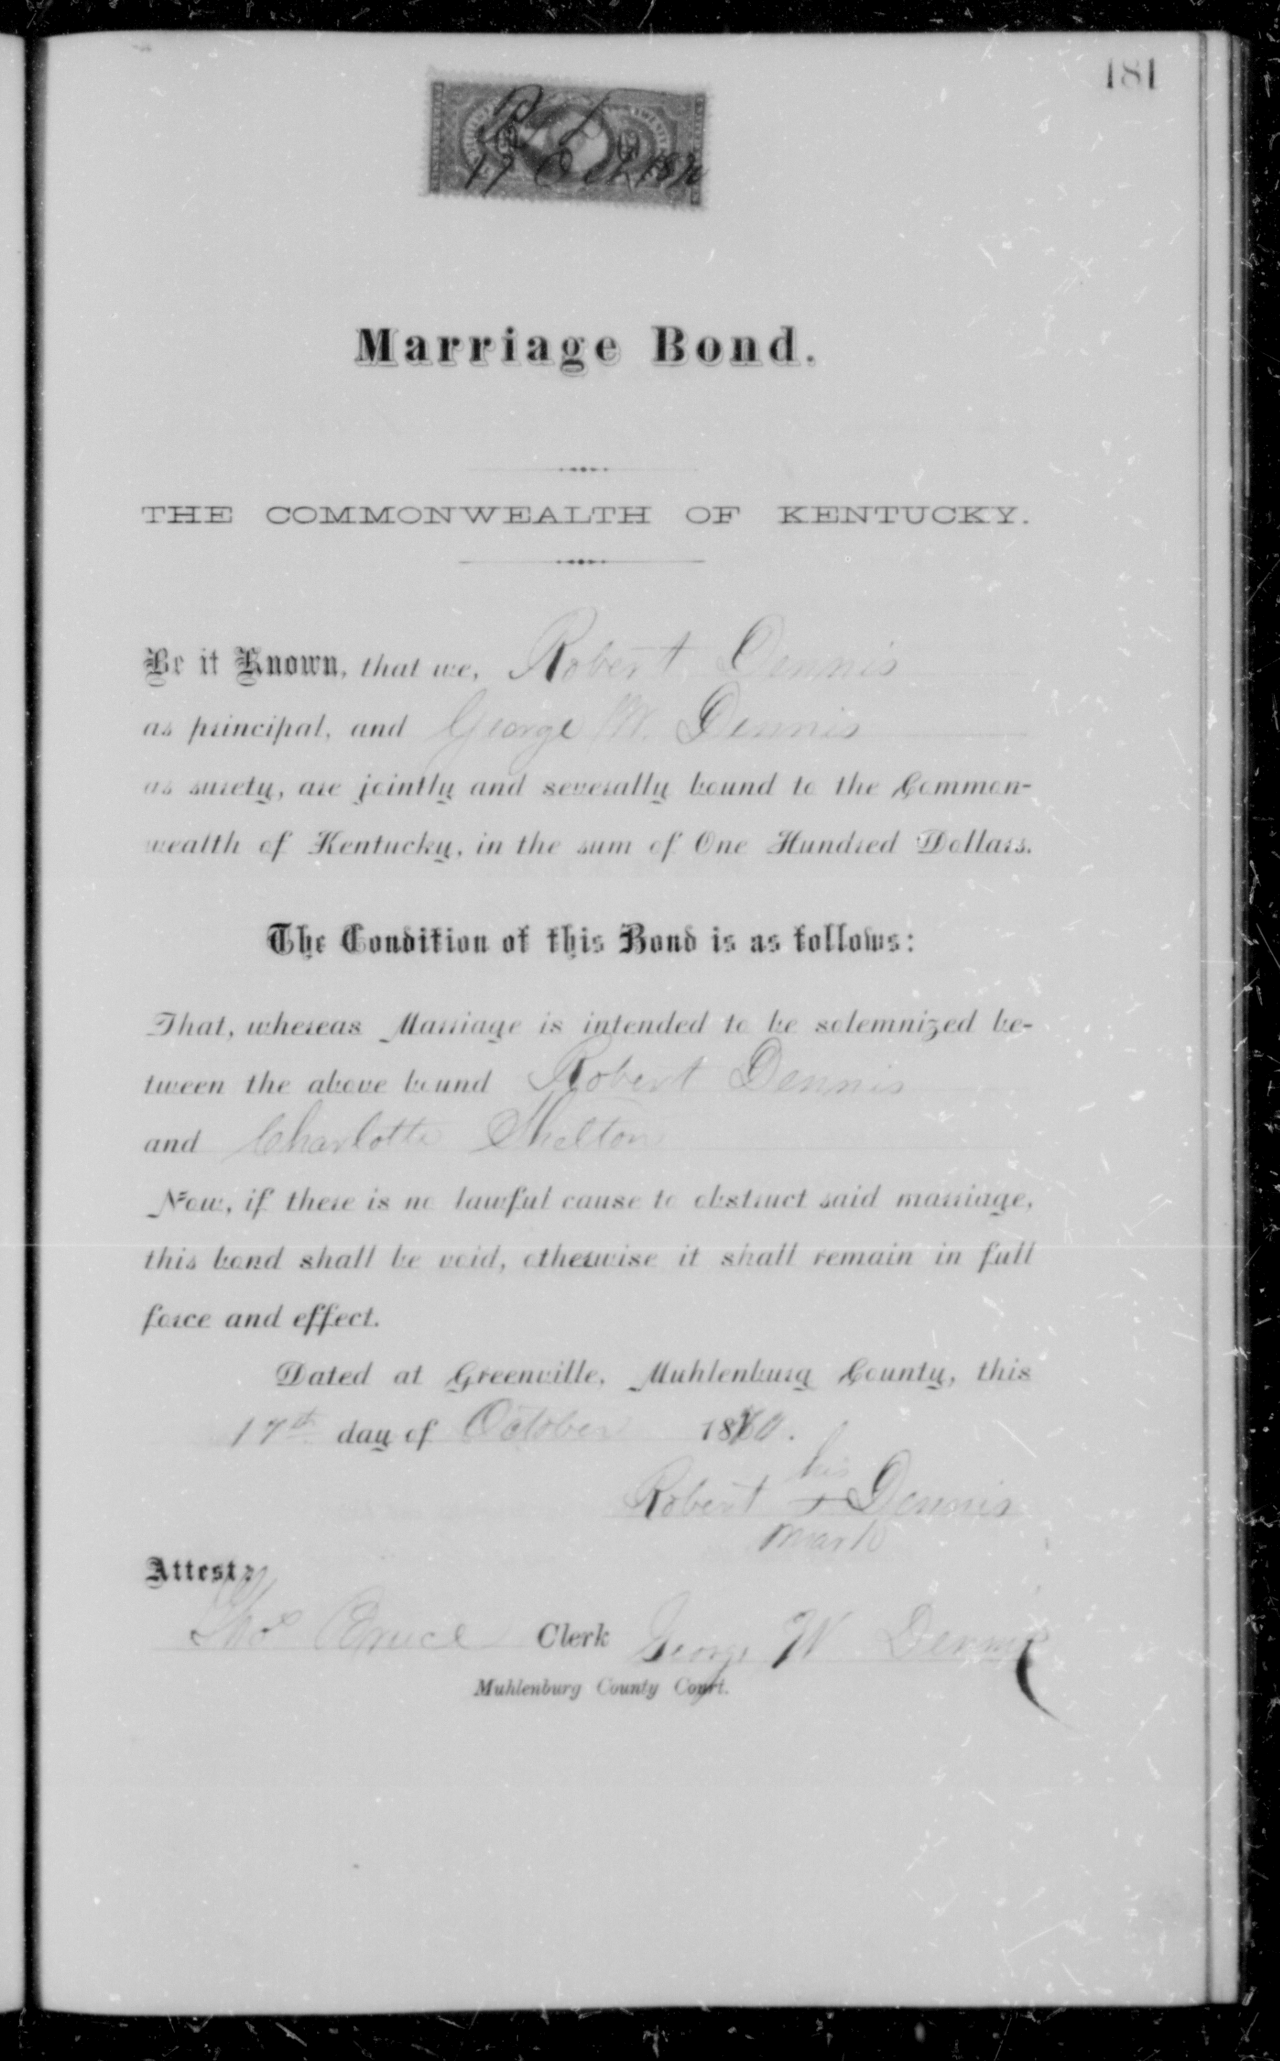 181
17 Oct 1870
Marriage Bond.
THE COMMONWEALTH OF KENTUCKY.
Be it Known, that we, Robert Dennis
as principal, and George W. Dennis
as surety, are jointly and severally bound to the Common-
wealth of Kentucky, in the sum of One Hundred Dollars.
The Condition of this Bond is as follows:
That, whereas Marriage is intended to be solemnized be-
tween the above bound Robert Dennis
and Charlotte Shelton
Now, if there is no lawful cause to obstruct said marriage,
this bond shall be void, otherwise it shall remain in full
force and effect.
Dated at Greenville, Muhlenburg County, this
17th day of October 1870.
his
Robert + Dennis
mark
Attest:
Tho Bruce Clerk George W Dennis
Muhlenburg County Court.